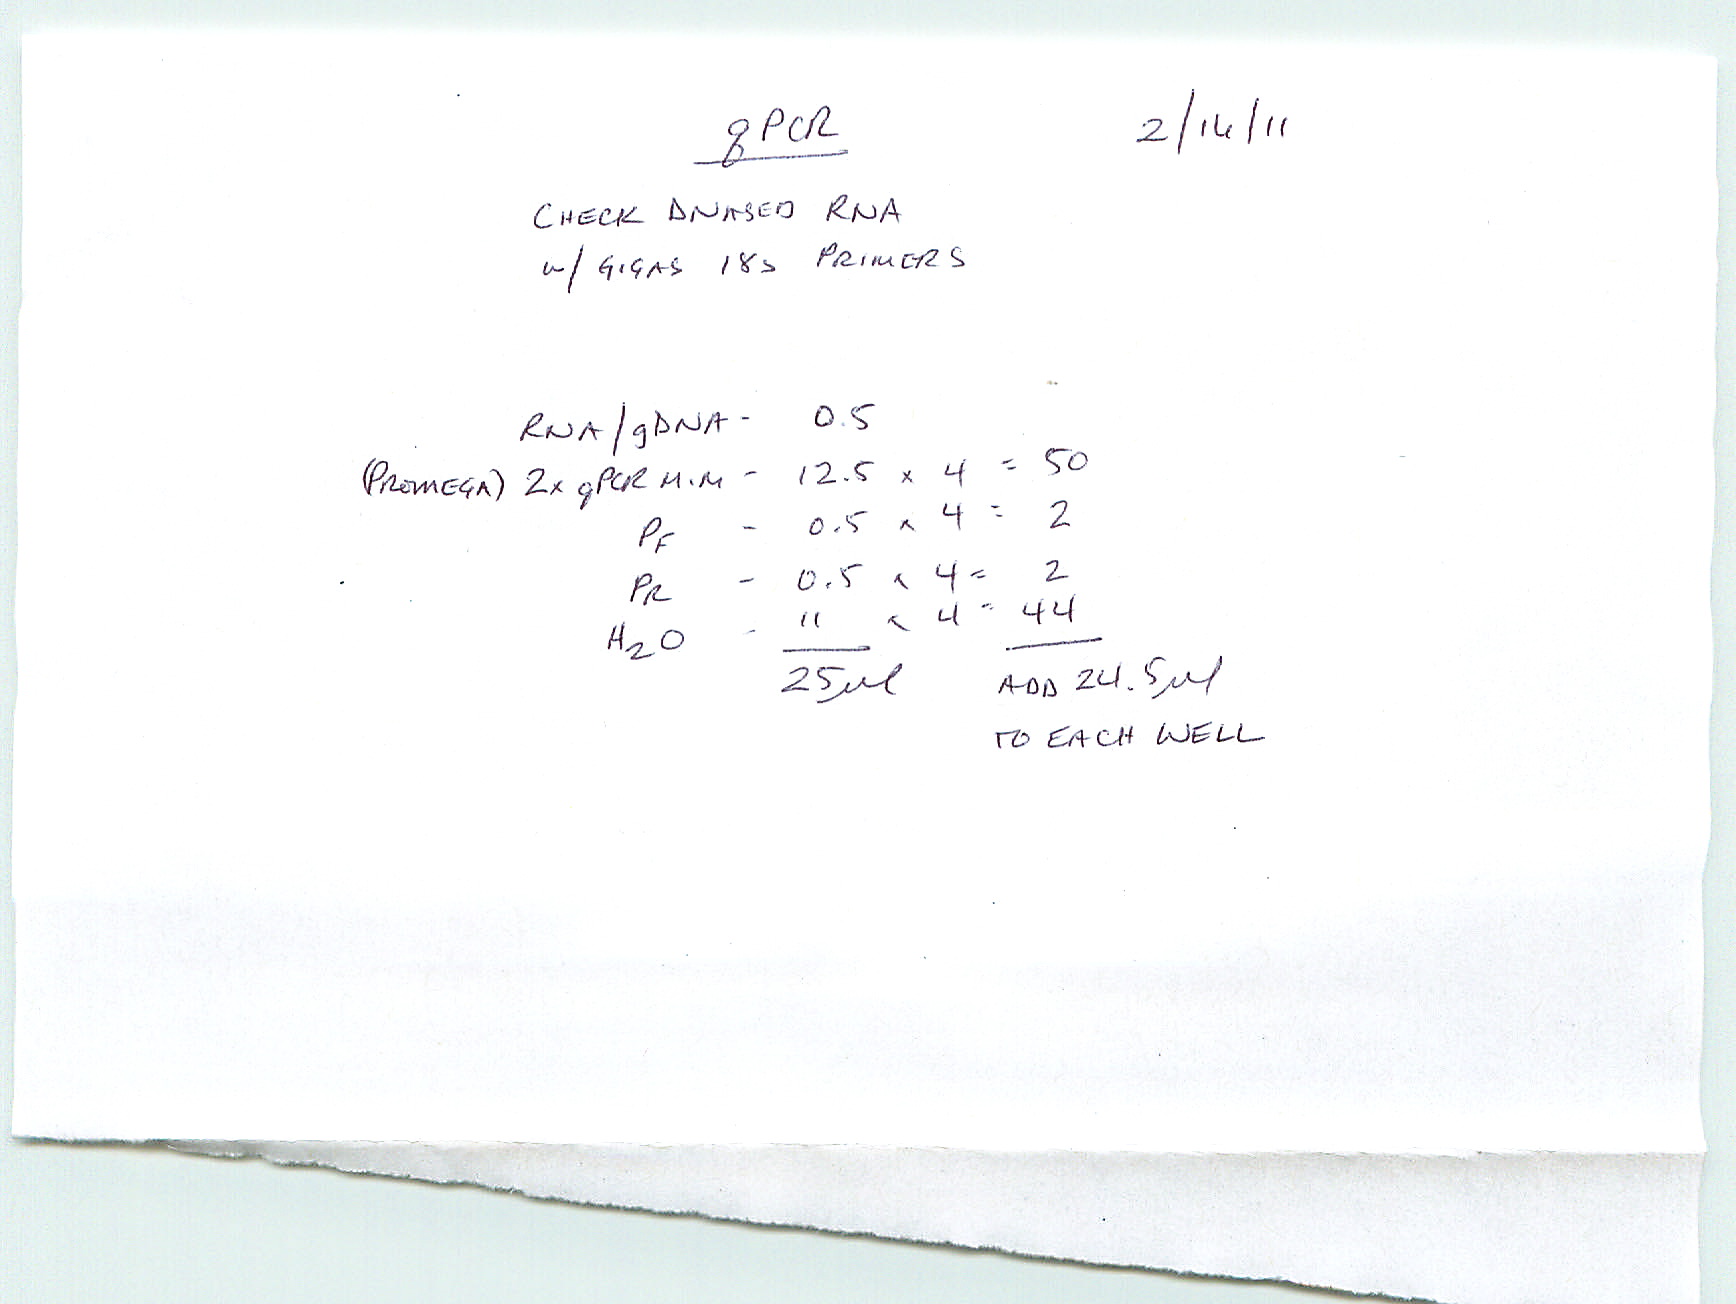 qPCR 2/14/11
CHECK DNASED RNA
w/ GIGAS 18s PRIMERS
RNA/gDNA - 0.5
(PROMEGA) 2x qPCR M.M - 12.5 x 4 = 50
PF - 0.5 x 4 = 2
PR - 0.5 x 4 = 2
H2O - 11 x 4 = 44
25µl ADD 24.5µl
TO EACH WELL